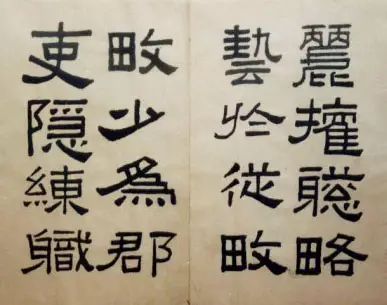 麗權聰略
藝於從畋
畋少爲郡
吏隱練職